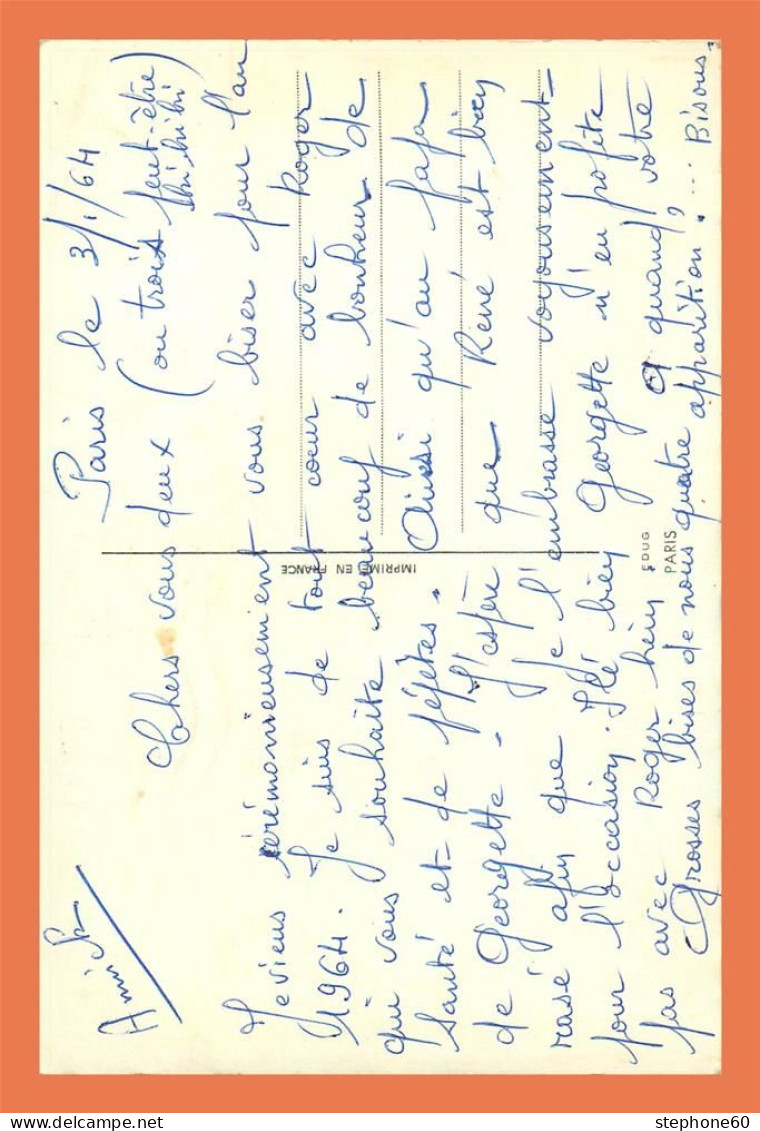 Paris le 3/1/64
Annick
Chers vous deux (ou trois peut-être
hi hi hi)
Je viens cérémonieusement vous biser pour l'an
1964. Je suis de tout cœur avec Roger
qui vous souhaite beaucoup de bonheur de
santé et de féfêtes. Aussi qu'au papa
de Georgette. J'espère que René est bien
rasé afin que je l'embrasse joyeusement
pour l'occasion. Georgette n'en profite
pas avec Roger hein A quand votre
Grosses bises de nous quatre apparition? ... Bisous.
IMPRIMÉ EN FRANCE
EDUG
PARIS
stephone60